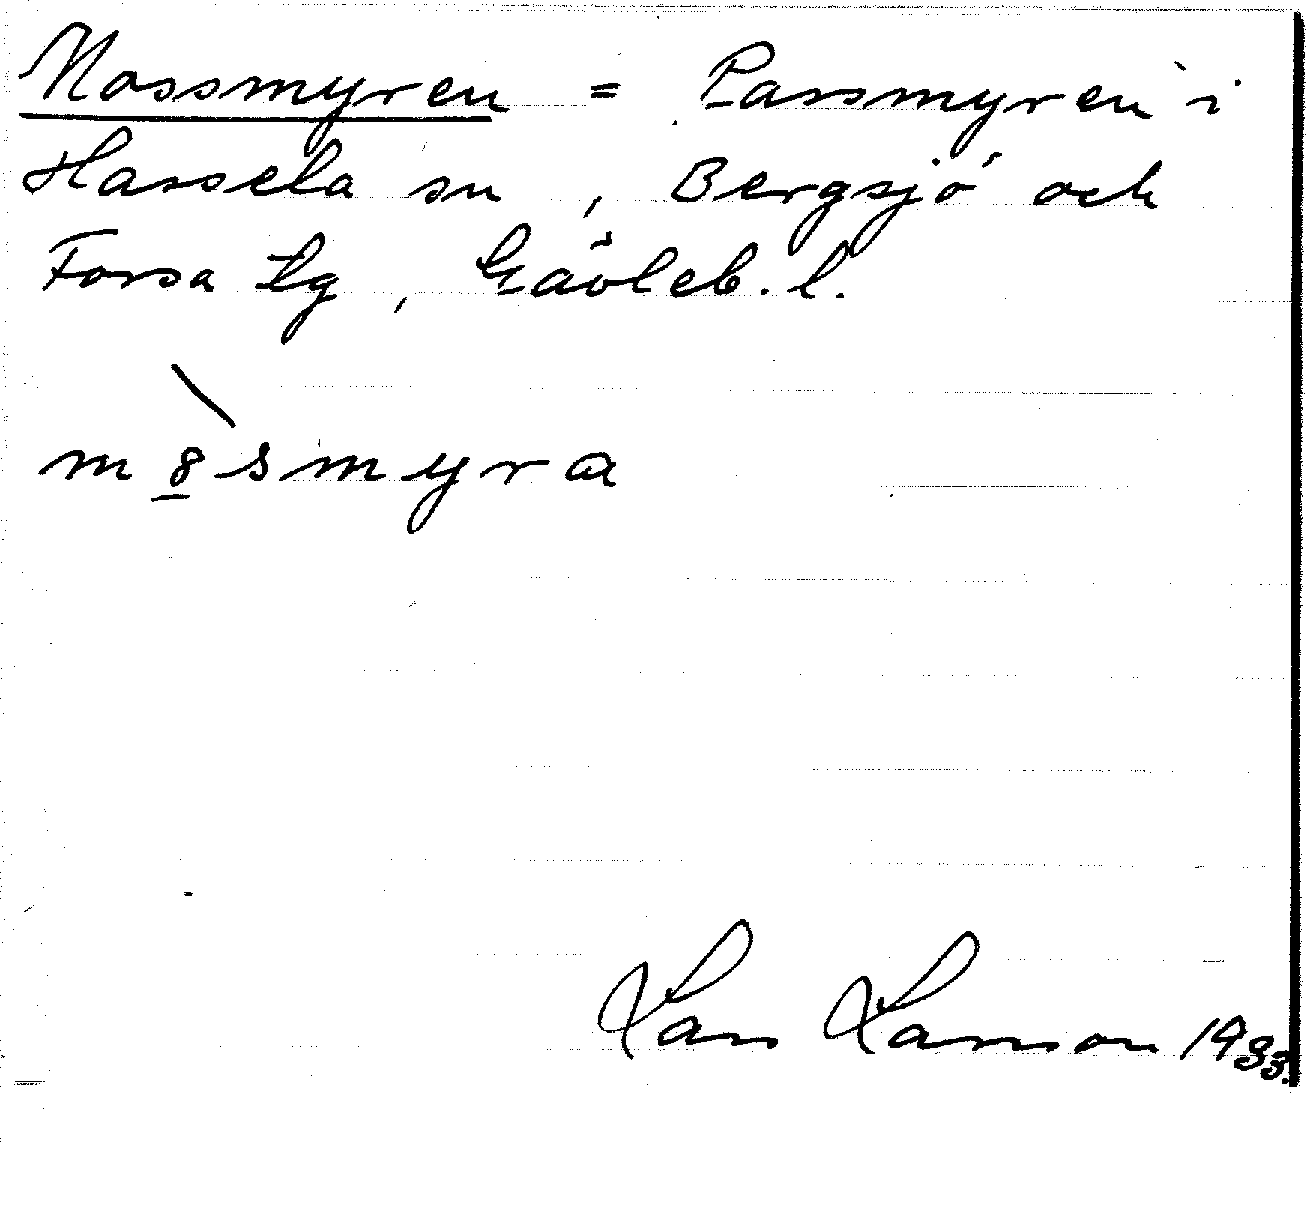 Mossmyren = Larsmyren i
Hassela sn, Bergsjö och
Forsa tg, Gävleb. l.
m8smyra
Lars Larsson